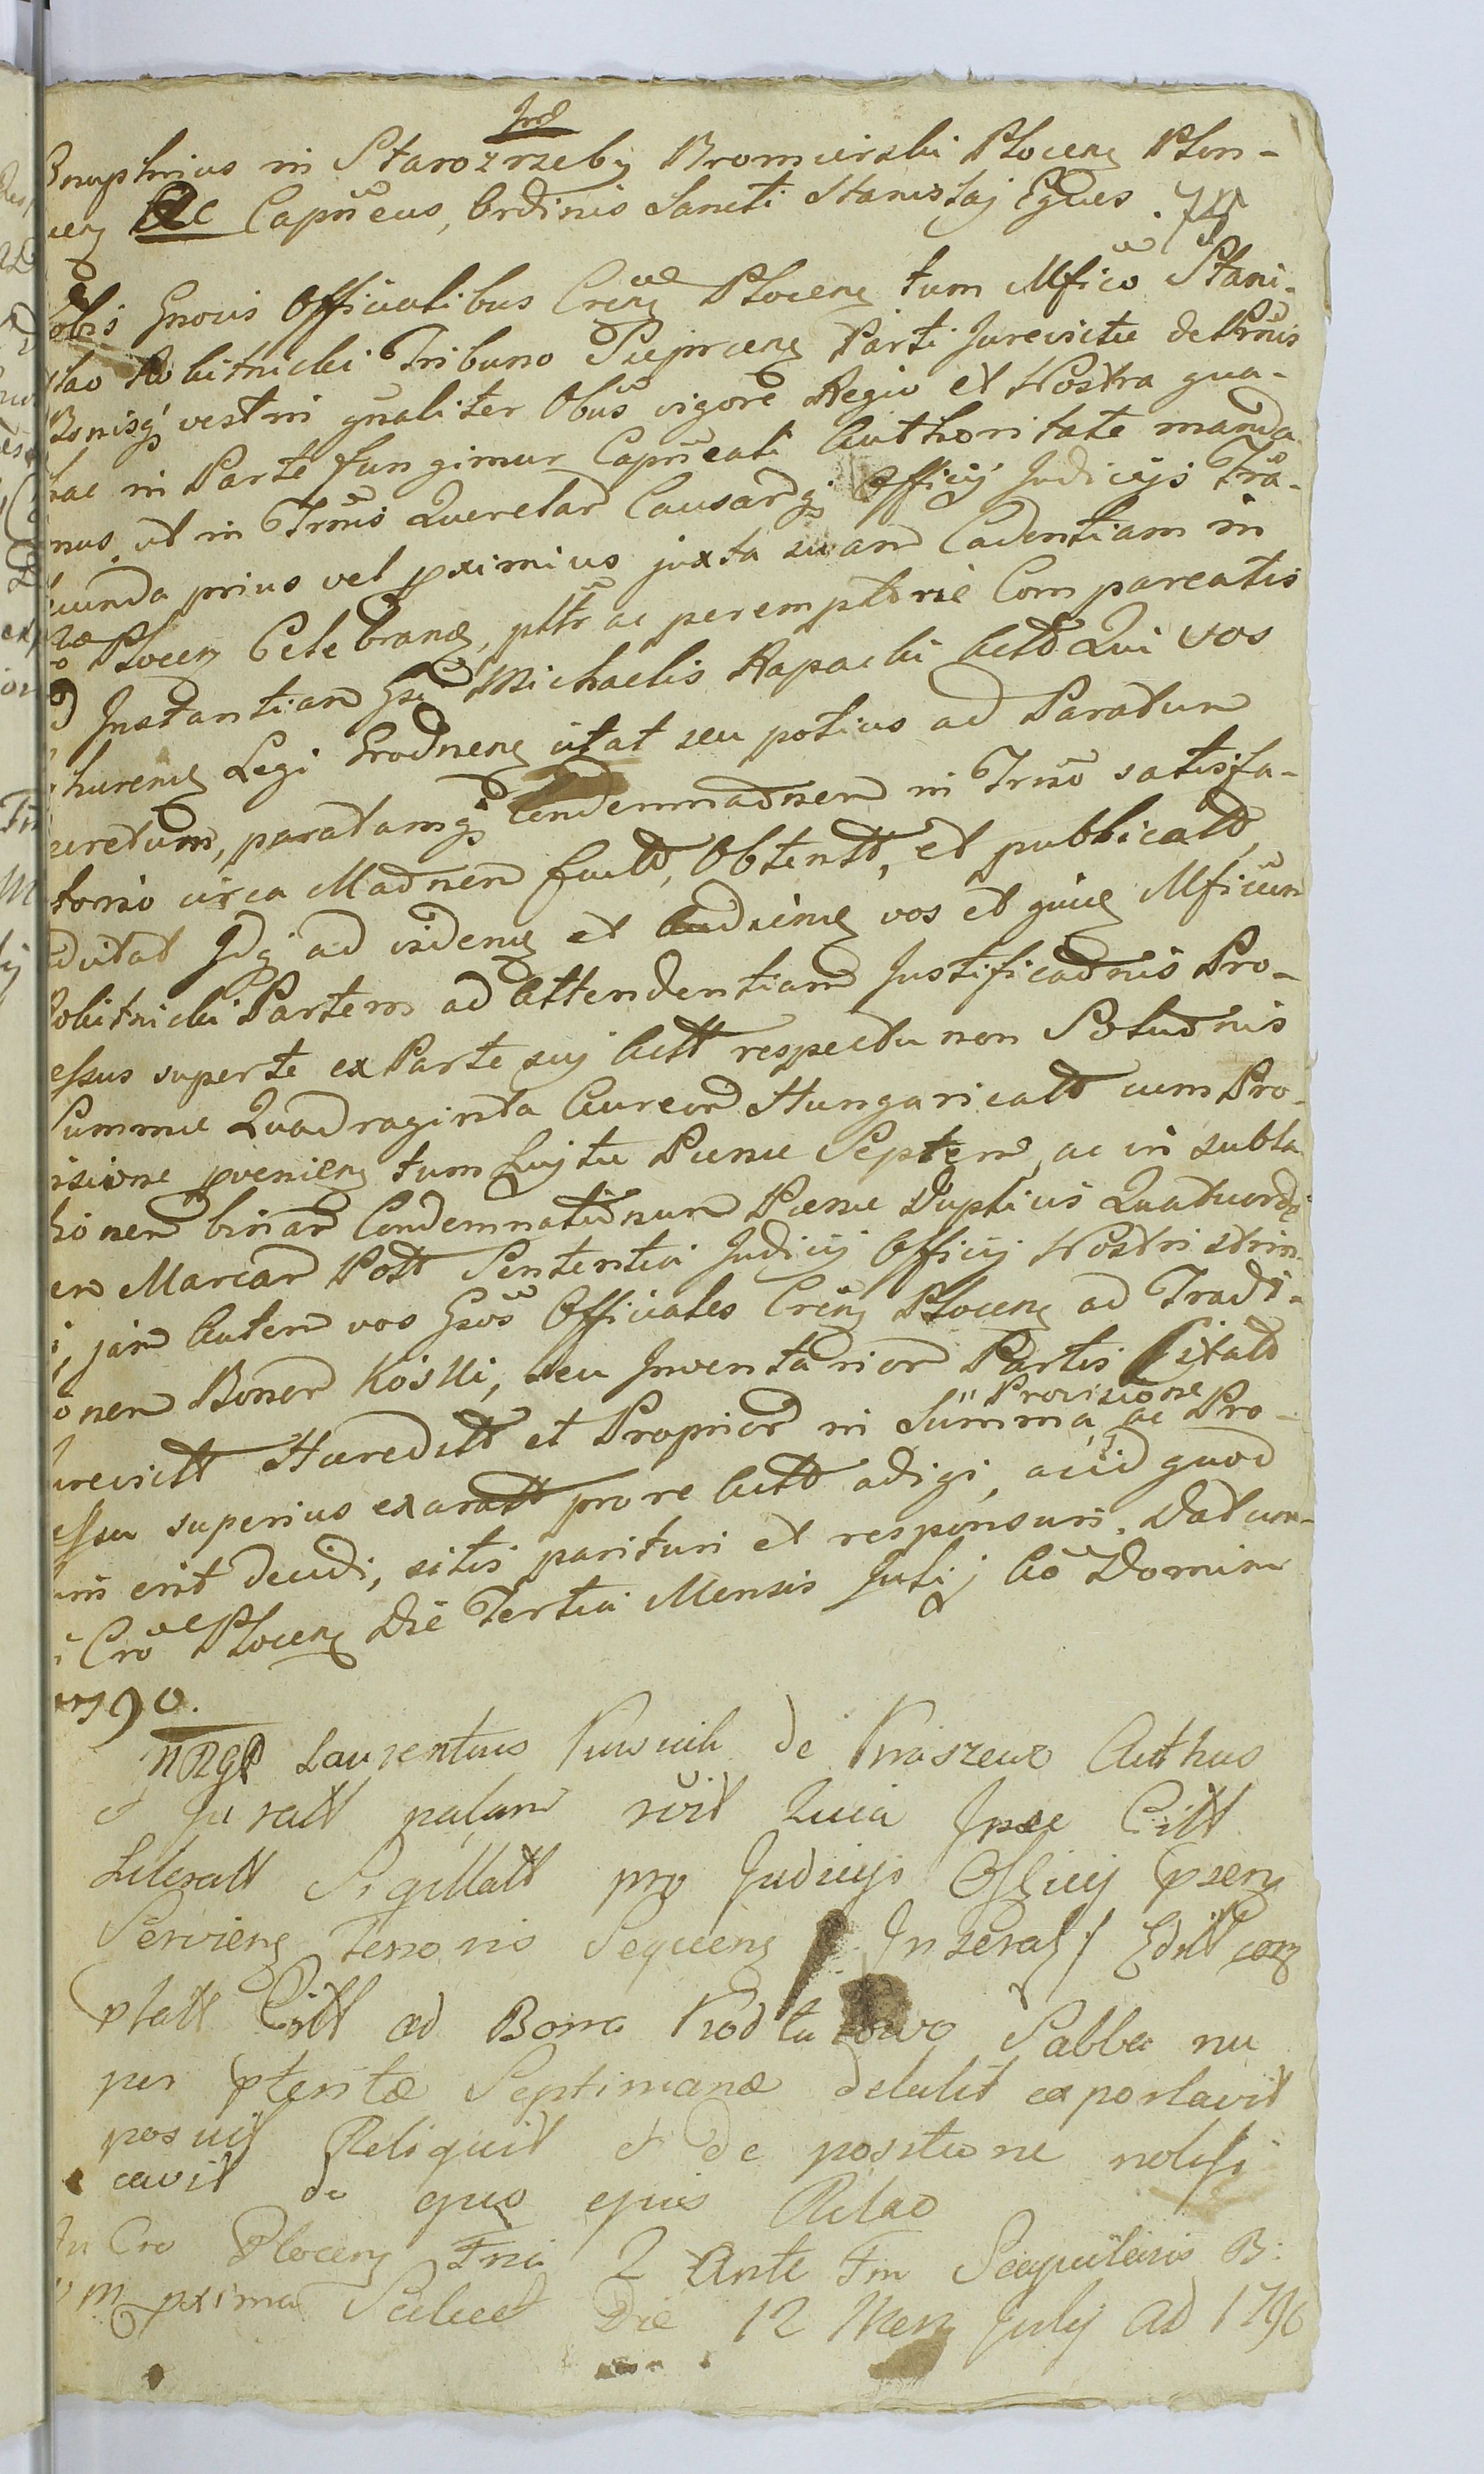 Ind
Onuphrius in Starozrzeby Bromierski Plocen Plon-
cen ac Capneus, Ordinis Sancti Stanislaj Eques. 74
Vobis Gnosis Officialibus Cren Plocen tum Mfico Stani-
slao Robitnicki Tribuno Parti Jurevictæ de Prnis
Bonisq vestris gnaliter Obus vigore Regia et Nostra qua-
hac in Parte fungimur Capneati Authoritate manda
mus ut in Trnis Querelar Causarq Officij Judicijs Fra-
cunda prius vel pximius juxta suam Cadentiam in
Plocen Celebrand, pltr ac peremptorie Compareatis
ad Instantiam Gsi Michaelis Rapacki Acto Qui vos
Legi Grodnen citat seu potius ad Paratum
cretum, paratamq Condemnadnem in Trno satisfa-
torio circa Madnem factt, Obtentt, et publicatt,
adcitat Idq ad viden et audien vos et Mficum
Robitnicki Partem ad Attendentiam Justificadnis Pro-
cessus superte ex Parte suj Actt respectu non Soludnis
Summæ Quadraginta Aureor Hungaricatt cum Pro-
visione pvenien tum Luytæ Pænæ Septem, ac in subla
tionem binar Condemnatidnum Pænæ Duplicis Quatuorde
cem Marcar Pott Sententia Judicij Officij Nostri strin-
gi, jam Autem vos Gsos Officiales Cren Plocen ad Tradi-
tionem Bonor Koski, seu Inventarior Partis Citatt
Jurevictt Hæreditt et Proprior in Summa, ac Pro-
Provisione
cessu superius exaratt pro re Actt adigi, acid quod
Juris erit decidi, sitis parituri et responsuri. Datum
in Cro Plocen Die Tertia Mensis Julij Ao Domini
1790.
Laurentius de Kraszewo Authus
et Juratt palam rvit Quia Ipse Citt
Literatt Sigillatt pro Judicijs Officij psen
Servien Tenoris Sequen / Inserat / Edit com
platt Citt ad Bona Sabba nu
per pteritæ Septimanæ detulit exportavit
posuit Reliquit et de positione notifi
cavit de quo ejus Relao
In Cro Plocen Fria 2 Ante Fm Scapularis B:
V M pxima Scilicet Die 12 Men Julij AD 1790